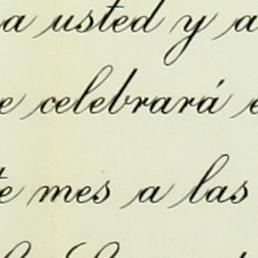 a usted y a
e celebrará e
te mes a las